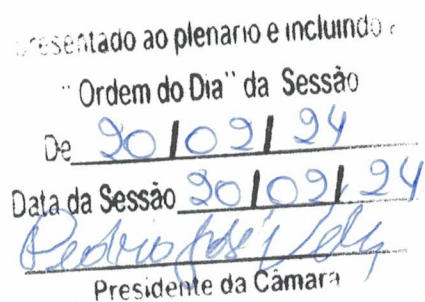 presentado ao plenario e incluindo
"Ordem do Dia" da Sessão
De 20/02/24
Data da Sessão 20/02/24
Presidente da Câmara